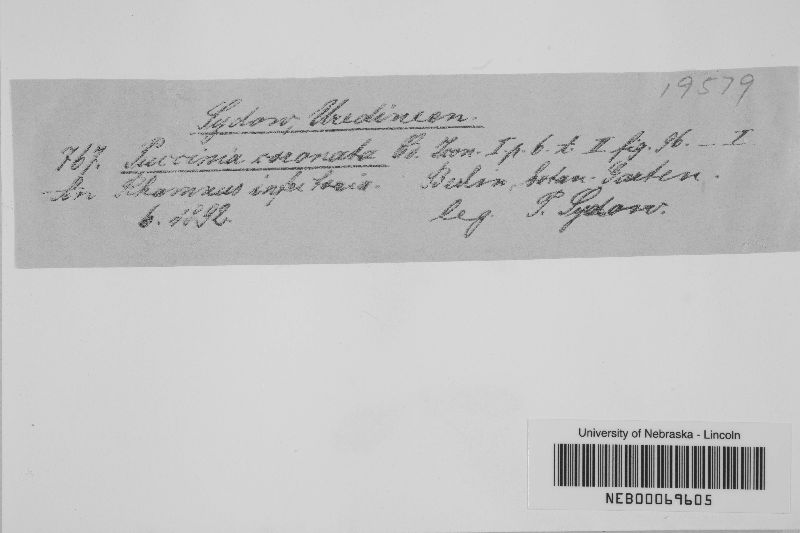 19579
Sydow, Uredineen.
767. Puccinia coronata Cd. Icon. I p. 6. t. II fig. 96. — I
An Rhamnus infectoria. Berlin, botan. Garten.
6. 1892. leg. P. Sydow.
University of Nebraska - Lincoln
NEB00069605